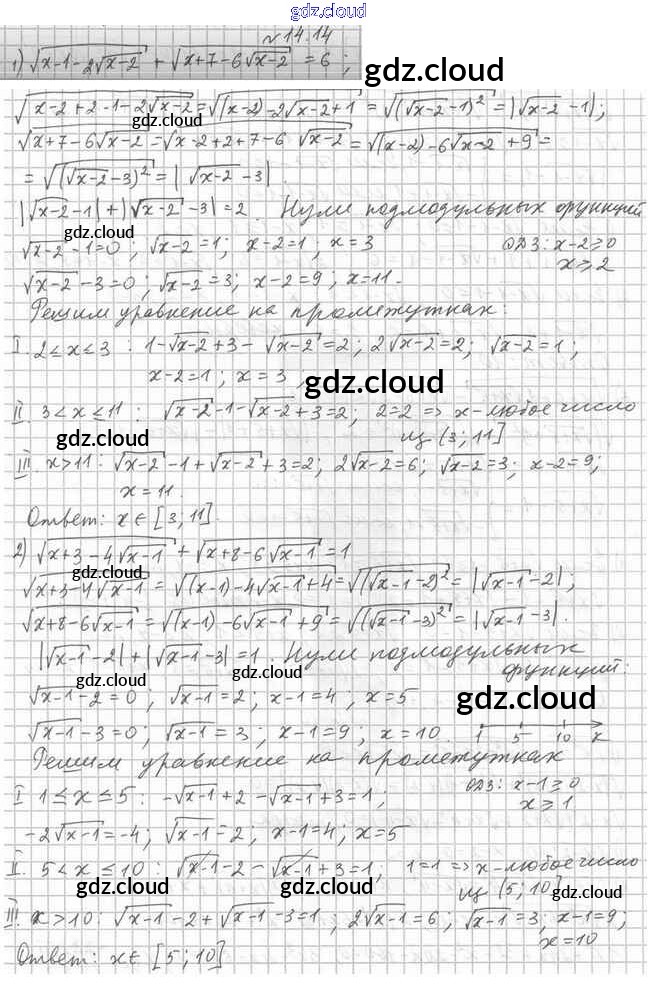 gdz.cloud
№14.14
1) √(x-1-2√(x-2)) + √(x+7-6√(x-2)) = 6 ; gdz.cloud
√(x-2+2-1-2√(x-2)) = √((x-2)-2√(x-2)+1) = √((√(x-2)-1)²) = |√(x-2) -1|;
gdz.cloud
√(x+7-6√(x-2)) = √(x-2+2+7-6√(x-2)) = √((x-2)-6√(x-2)+9) =
= √((√(x-2)-3)²) = |√(x-2) -3|.
gdz.cloud
|√(x-2)-1|+|√(x-2)-3|=2. Нули подмодульных функций
gdz.cloud
√(x-2)-1=0; √(x-2)=1; x-2=1; x=3 ОДЗ: x-2≥0
√(x-2)-3=0; √(x-2)=3; x-2=9; x=11. x≥2
Решим уравнение на промежутках:
I. 2≤x≤3 : 1-√(x-2)+3-√(x-2)=2; 2√(x-2)=2; √(x-2)=1;
x-2=1; x=3, gdz.cloud
II. 3<x≤11: √(x-2)-1-√(x-2)+3=2; 2=2 => x-любое число
gdz.cloud из (3; 11]
III. x>11: √(x-2)-1+√(x-2)+3=2; 2√(x-2)=6; √(x-2)=3; x-2=9;
x=11. gdz.cloud
Ответ: x∈[3; 11].
2) √(x+3-4√(x-1)) + √(x+8-6√(x-1)) = 1
gdz.cloud
√(x+3-4√(x-1)) = √((x-1)-4√(x-1)+4) = √((√(x-1)-2)²) = |√(x-1)-2|;
√(x+8-6√(x-1)) = √((x-1)-6√(x-1)+9) = √((√(x-1)-3)²) = |√(x-1)-3|.
gdz.cloud
|√(x-1)-2|+|√(x-1)-3|=1. Нули подмодульных
функций:
√(x-1)-2=0; √(x-1)=2; x-1=4; x=5 gdz.cloud
√(x-1)-3=0; √(x-1)=3; x-1=9; x=10. 1 5 10 x
Решим уравнение на промежутках
gdz.cloud
I 1≤x≤5: -√(x-1)+2-√(x-1)+3=1; ОДЗ: x-1≥0
gdz.cloud x≥1
-2√(x-1)=-4; √(x-1)=2; x-1=4; x=5
II. 5<x≤10: √(x-1)-2-√(x-1)+3=1; 1=1 => x-любое число
gdz.cloud gdz.cloud из (5; 10] gdz.cloud
III. x>10: √(x-1)-2+√(x-1)-3=1; 2√(x-1)=6; √(x-1)=3; x-1=9;
x=10
Ответ: x∈[5; 10] gdz.cloud gdz.cloud